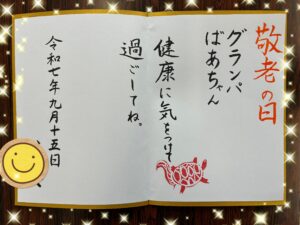 敬老の日
グランパ
ばあちゃん
健康に気をつけて
過ごしてね。
令和七年九月十五日